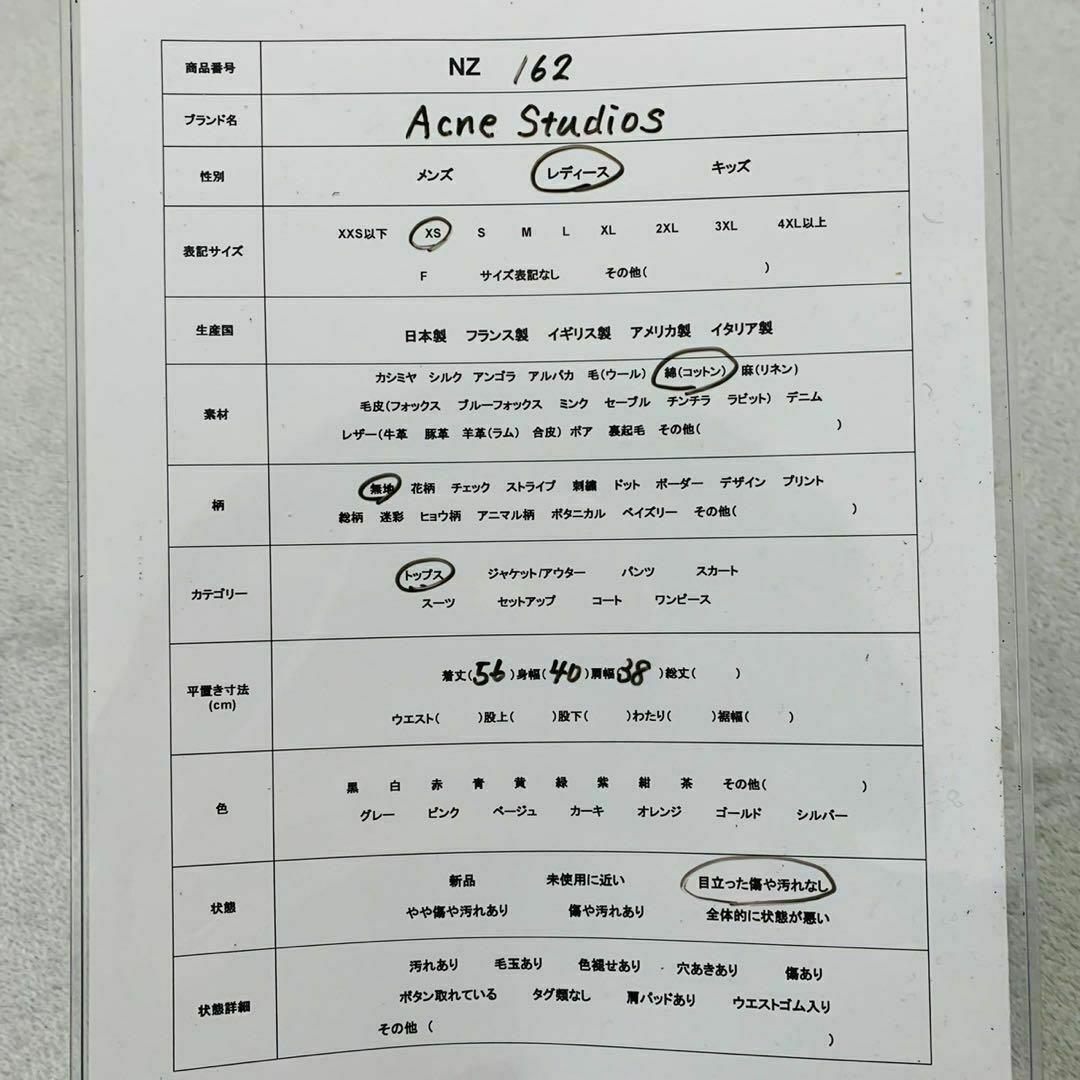 商品番号 NZ 162
ブランド名 Acne Studios
性別 メンズ レディース キッズ
表記サイズ
XXS以下 XS S M L XL 2XL 3XL 4XL以上
F サイズ表記なし その他( )
生産国 日本製 フランス製 イギリス製 アメリカ製 イタリア製
素材
カシミヤ シルク アンゴラ アルパカ 毛(ウール) 綿(コットン) 麻(リネン)
毛皮(フォックス ブルーフォックス ミンク セーブル チンチラ ラビット) デニム
レザー(牛革 豚革 羊革(ラム) 合皮) ボア 裏起毛 その他( )
柄
無地 花柄 チェック ストライプ 刺繍 ドット ボーダー デザイン プリント
総柄 迷彩 ヒョウ柄 アニマル柄 ボタニカル ペイズリー その他( )
カテゴリー
トップス ジャケット/アウター パンツ スカート
スーツ セットアップ コート ワンピース
平置き寸法
(cm)
着丈(56)身幅(40)肩幅(38)総丈( )
ウエスト( )股上( )股下( )わたり( )裾幅( )
色
黒 白 赤 青 黄 緑 紫 紺 茶 その他( )
グレー ピンク ベージュ カーキ オレンジ ゴールド シルバー
状態
新品 未使用に近い 目立った傷や汚れなし
やや傷や汚れあり 傷や汚れあり 全体的に状態が悪い
状態詳細
汚れあり 毛玉あり 色褪せあり 穴あきあり 傷あり
ボタン取れている タグ類なし 肩パッドあり ウエストゴム入り
その他 ( )